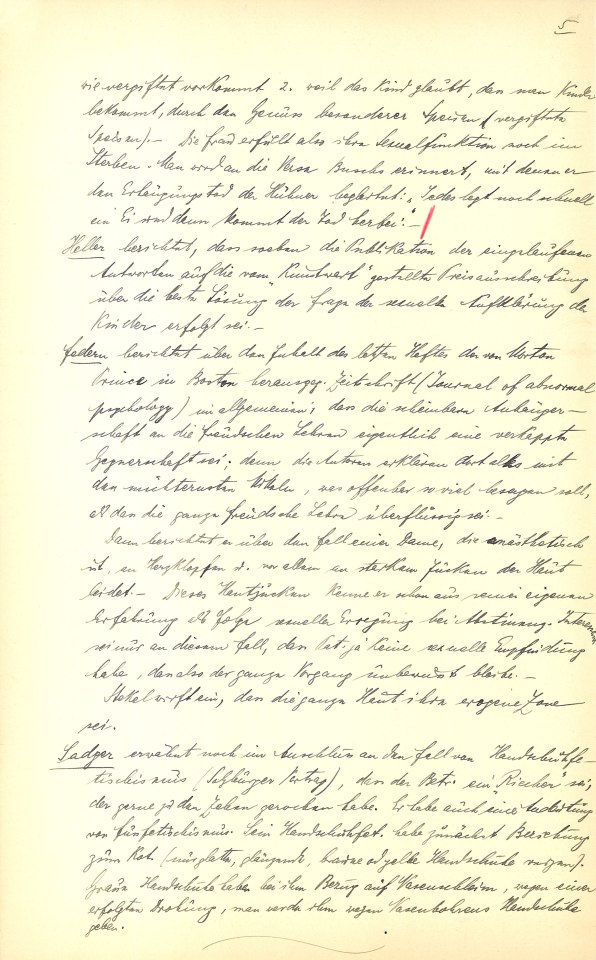 5
wie vergiftet vorkommt 2. weil das Kind glaubt, dass man Kinder
bekommt, durch den Genuss besonderer Speisen (vergiftete
Speisen).- Die Frau erfüllt also ihre Sexualfunktion noch im
Sterben. Man wird an die Verse Buschs erinnert, mit denen er
den Erhängungstod der Hühner begleitet: „Jedes legt noch schnell
ein Ei und dann kommt der Tod herbei."-
Heller berichtet, dass soeben die Publikation der eingelaufenen
Antworten auf die vom „Kunstwart" gestellte Preisausschreibung
über die beste Lösung der Frage der sexuellen Aufklärung der
Kinder erfolgt sei.-
Federn berichtet über den Inhalt des letzten Heftes der von Morton
Prince in Boston herausgeg. Zeitschrift (Journal of abnormal
psychology) im allgemeinen; dass die scheinbare Anhänger-
schaft an die Freudschen Lehren eigentlich eine verkappte
Gegnerschaft sei; denn die Autoren erklären dort alles mit
den nüchternsten Worten, was offenbar so viel besagen soll,
als dass die ganze Freudsche Lehre überflüssig sei.-
Dann berichtet er über den Fall einer Dame, die anästhetisch
ist, an Herzklopfen u. vor allem an starkem Jucken der Haut
leidet.- Dieses Hautjucken kenne er schon aus seiner eigenen
Erfahrung als Folge sexueller Erregung bei Abstinenz. Interessant
sei nur an diesem Fall, dass Pat. ja keine sexuelle Empfindung
habe, dass also der ganze Vorgang unbewusst bleibe.-
Stekel wirft ein, dass die ganze Haut ihre erogene Zone
sei.
Sadger erwähnt noch im Anschluss an den Fall von Handschuhfe-
tischismus (Salzburger Vortrag), dass der Betr. ein „Riecher" sei,
der gerne zu den Zehen gerochen habe. Er habe auch eine Andeutung
von Fussfetischismus. Sein Handschuhfet. habe zunächst Beziehung
zum Kot. (nur glatte, glänzende, braune od gelbe Handschuhe reizen).
Graue Handschuhe haben bei ihm Bezug auf Nasenschleim, wegen einer
erfolgten Drohung, man werde ihm wegen Nasenbohrens Handschuhe
geben.